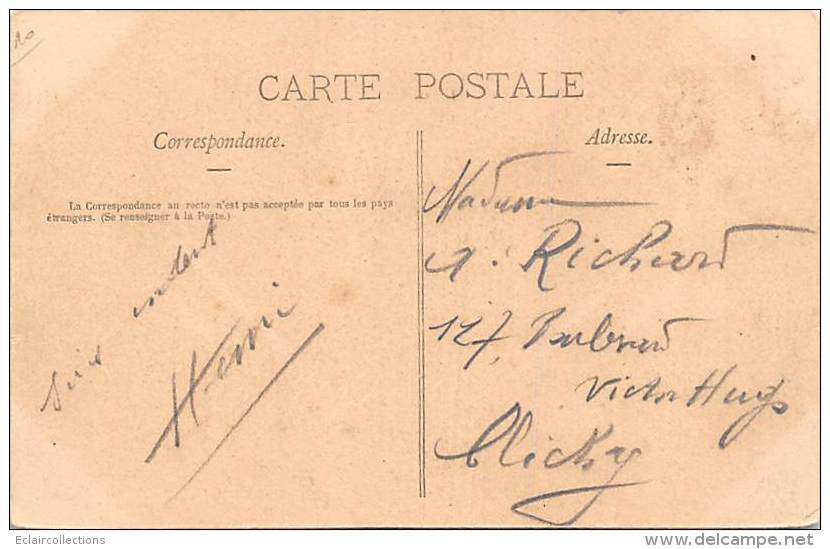 10
CARTE POSTALE
Correspondance.
Adresse.
La Correspondance au recto n'est pas acceptée par tous les pays
étrangers. (Se renseigner à la Poste.)
Suis
Henri
Madame
A. Richard
127, Boulevard
Victor Hugo
Clichy
Eclaircollections
www.delcampe.net